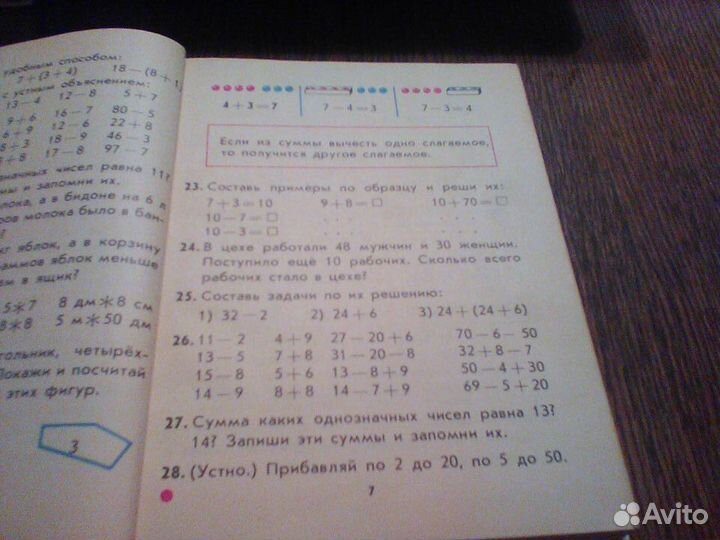 удобным способом:
7+(3+4) 18-(8+1
с устным объяснением:
13-4 12-8 5+7
9+6 16-7 80-5
6+9 12-6 22+8
8+3 18-9 46-3
3+8 17-8 97-7
значных чисел равна 11?
мы и запомни их.
лока, а в бидоне на 6 л
ров молока было в би-
?
кг яблок, а в корзину
аммов яблок меньше
ли в ящик?
5*7 8 дм*8 см
8*8 5 м*50 дм
гольник, четырёх-
Покажи и посчитай
этих фигур.
3
4+3=7 7-4=3 7-3=4
Если из суммы вычесть одно слагаемое,
то получится другое слагаемое.
23. Составь примеры по образцу и реши их:
7+3=10 9+8=□ 10+70=□
10-7=□ ... ...
10-3=□ ... ...
24. В цехе работали 48 мужчин и 30 женщин.
Поступило ещё 10 рабочих. Сколько всего
рабочих стало в цехе?
25. Составь задачи по их решению:
1) 32-2 2) 24+6 3) 24+(24+6)
26. 11-2 4+9 27-20+6 70-6-50
13-5 7+8 31-20-8 32+8-7
15-8 5+6 13-8+9 50-4+30
14-9 8+8 14-7+9 69-5+20
27. Сумма каких однозначных чисел равна 13?
14? Запиши эти суммы и запомни их.
28. (Устно.) Прибавляй по 2 до 20, по 5 до 50.
7
Avito